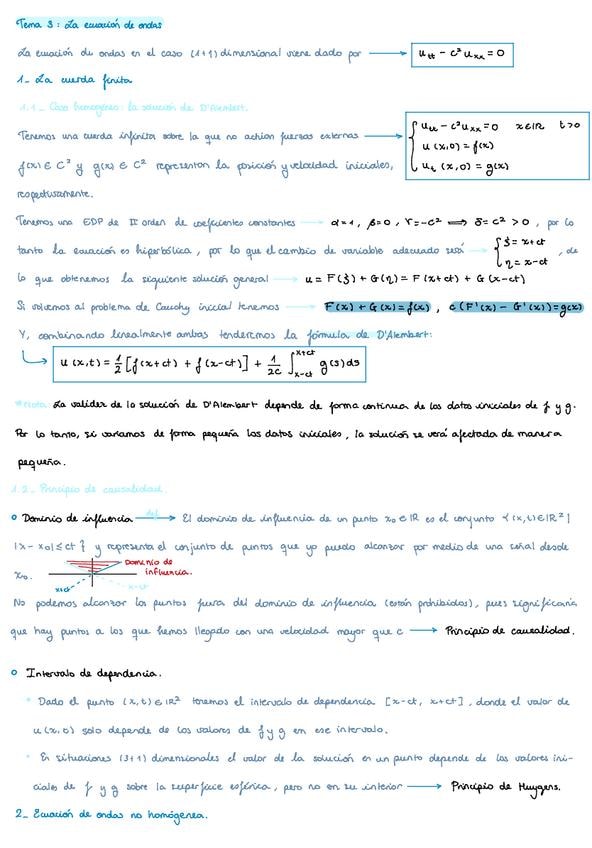 Tema 3: La ecuación de ondas
La ecuación de ondas en el caso (1+1) dimensional viene dado por → u_tt - c² u_xx = 0
1_ La cuerda finita
1.1_ Caso homogéneo: la solución de D'Alembert.
Tenemos una cuerda infinita sobre la que no actúan fuerzas externas → { u_tt - c² u_xx = 0 x∈ℝ t>0
f(x) ∈ C² y g(x) ∈ C² representan la posición y velocidad iniciales, u(x,0) = f(x)
respectivamente. u_t(x,0) = g(x)
Tenemos una EDP de II orden de coeficientes constantes → α=1, β=0, γ=-c² ⟹ δ=c²>0, por lo
tanto la ecuación es hiperbólica, por lo que el cambio de variable adecuado será → { ξ = x+ct η = x-ct , de
lo que obtenemos la siguiente solución general → u = F(ξ) + G(η) = F(x+ct) + G(x-ct)
Si volvemos al problema de Cauchy inicial tenemos → F(x) + G(x) = f(x) , c(F'(x) - G'(x)) = g(x)
Y, combinando linealmente ambas tendremos la fórmula de D'Alembert:
u(x,t) = 1/2 [f(x+ct) + f(x-ct)] + 1/2c ∫_{x-ct}^{x+ct} g(s)ds
*Nota: La validez de la solución de D'Alembert depende de forma continua de los datos iniciales de f y g.
Por lo tanto, si variamos de forma pequeña los datos iniciales, la solución se verá afectada de manera
pequeña.
1.2_ Principio de causalidad.
Dominio de influencia def→ El dominio de influencia de un punto x₀ ∈ ℝ es el conjunto {(x,t)∈ℝ² |
|x-x₀| ≤ ct } y representa el conjunto de puntos que yo puedo alcanzar por medio de una señal desde
x₀. Dominio de influencia. x+ct x-ct
No podemos alcanzar los puntos fuera del dominio de influencia (están prohibidos), pues significaría
que hay puntos a los que hemos llegado con una velocidad mayor que c → Principio de causalidad.
Intervalo de dependencia.
* Dado el punto (x,t) ∈ ℝ² tenemos el intervalo de dependencia [x-ct, x+ct], donde el valor de
u(x,0) solo depende de los valores de f y g en ese intervalo.
* En situaciones (3+1) dimensionales el valor de la solución en un punto depende de los valores ini-
ciales de f y g sobre la superficie esférica, pero no en su interior → Principio de Huygens.
2_ Ecuación de ondas no homogénea.